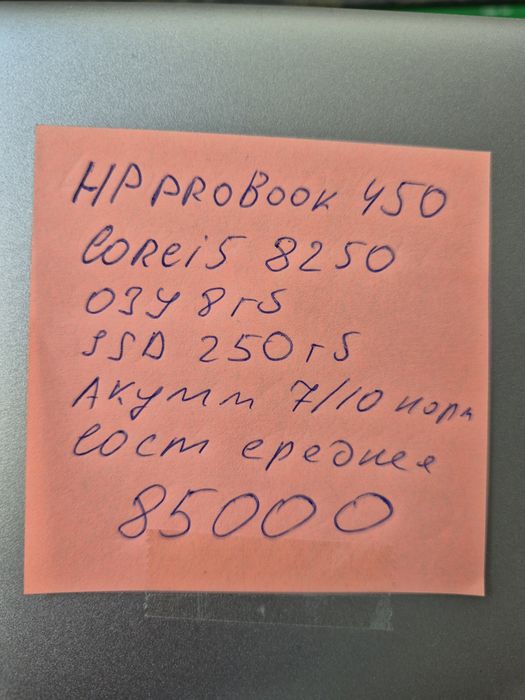 HP PROBOOK 450
Corei5 8250
ОЗУ 8гб
SSD 250гб
Акумм 7/10 норм
Сост среднее
85000